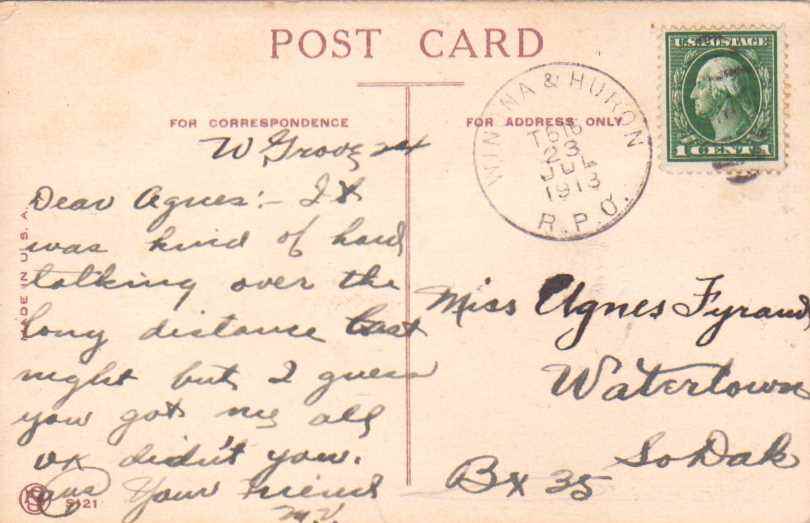 POST CARD
FOR CORRESPONDENCE
FOR ADDRESS ONLY
U.S. POSTAGE
1 CENT 1
WINONA & HURON
T 616
23
JUL
1913
R.P.O.
W Grove 24
Dear Agnes:- It
was kind of hard
talking over the
long distance last
night but I guess
you got me all
ok didn't you.
ans Your Friend
M.V.
MADE IN U.S.A.
S121
Miss Agnes Fyrand
Watertown
So Dak
Bx 35